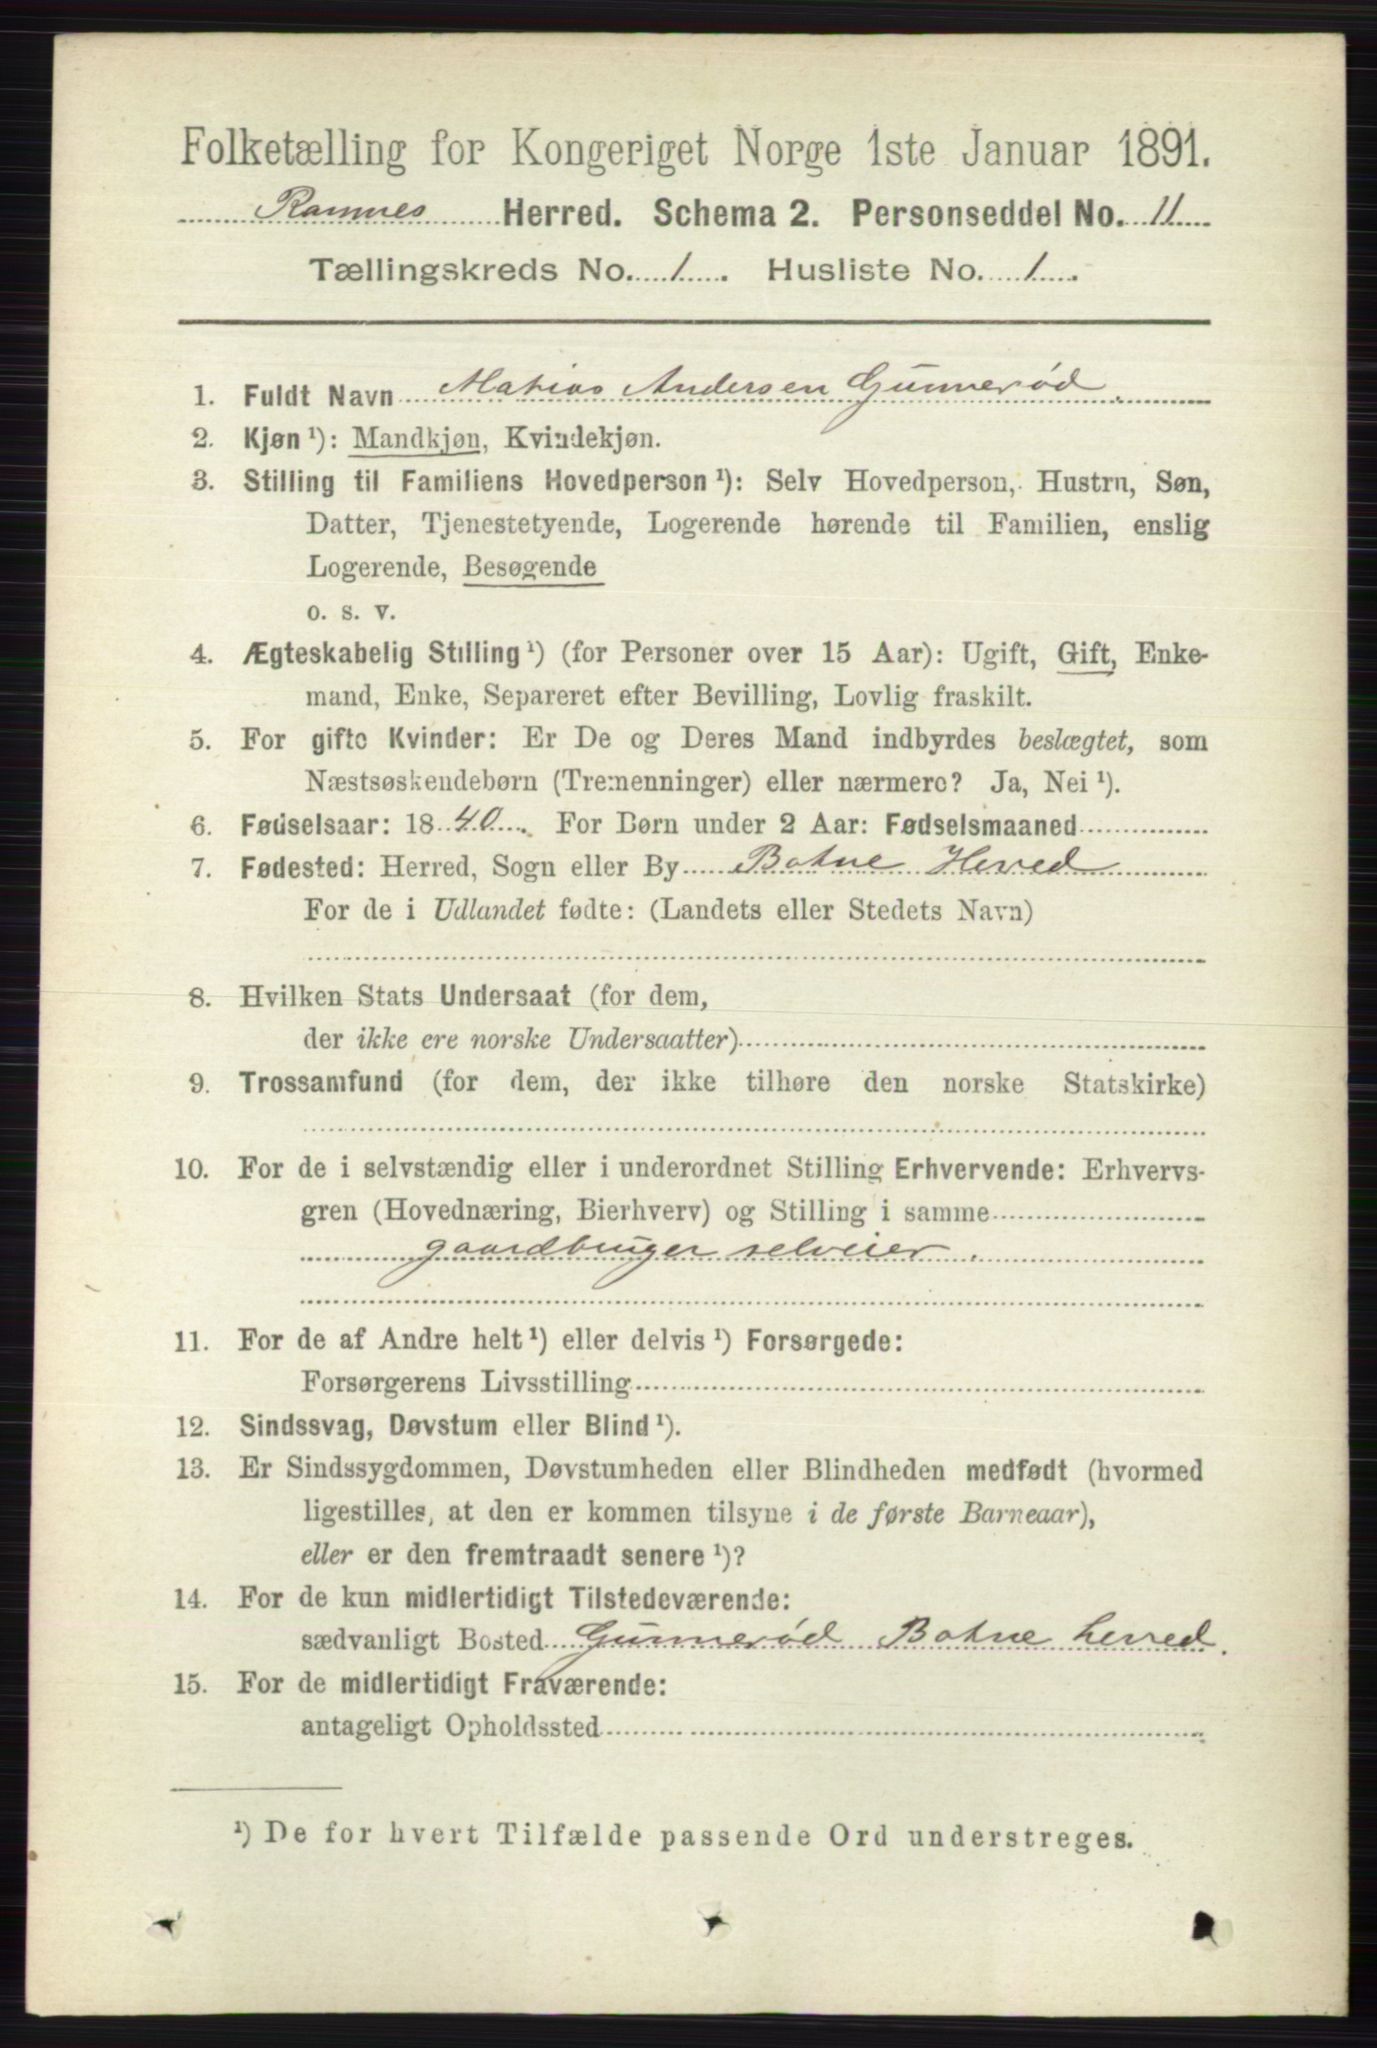 Folketælling for Kongeriget Norge 1ste Januar 1891.
Ramnes Herred. Schema 2. Personseddel No. 11
Tællingskreds No. 1. Husliste No. 1.
1. Fuldt Navn Matias Andersen Gunnerød
2. Kjøn ¹): Mandkjøn, Kvindekjøn.
3. Stilling til Familiens Hovedperson ¹): Selv Hovedperson, Hustru, Søn,
Datter, Tjenestetyende, Logerende hørende til Familien, enslig
Logerende, Besøgende
o. s. v.
4. Ægteskabelig Stilling ¹) (for Personer over 15 Aar): Ugift, Gift, Enke-
mand, Enke, Separeret efter Bevilling, Lovlig fraskilt.
5. For gifte Kvinder: Er De og Deres Mand indbyrdes beslægtet, som
Næstsøskendebørn (Tremenninger) eller nærmere? Ja, Nei ¹).
6. Fødselsaar: 1840. For Børn under 2 Aar: Fødselsmaaned
7. Fødested: Herred, Sogn eller By Botne Herred
For de i Udlandet fødte: (Landets eller Stedets Navn)
8. Hvilken Stats Undersaat (for dem,
der ikke ere norske Undersaatter)
9. Trossamfund (for dem, der ikke tilhøre den norske Statskirke)
10. For de i selvstændig eller i underordnet Stilling Erhvervende: Erhvervs-
gren (Hovednæring, Bierhverv) og Stilling i samme
gaardbruger selveier.
11. For de af Andre helt ¹) eller delvis ¹) Forsørgede:
Forsørgerens Livsstilling
12. Sindssvag, Døvstum eller Blind ¹).
13. Er Sindssygdommen, Døvstumheden eller Blindheden medfødt (hvormed
ligestilles, at den er kommen tilsyne i de første Barneaar),
eller er den fremtraadt senere ¹)?
14. For de kun midlertidigt Tilstedeværende:
sædvanligt Bosted Gunnerød Botne herred.
15. For de midlertidigt Fraværende:
antageligt Opholdssted
¹) De for hvert Tilfælde passende Ord understreges.